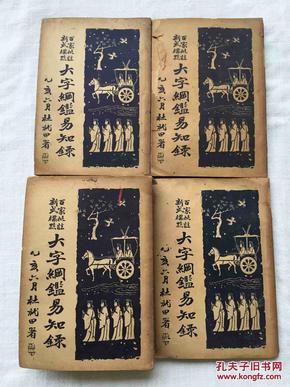 百家批註
新式標點
大字綱鑑易知錄
乙亥六月杜就田署
百家批註
新式標點
大字綱鑑易知錄
乙亥六月杜就田署
百家批註
新式標點
大字綱鑑易知錄
乙亥六月杜就田署
百家批註
新式標點
大字綱鑑易知錄
乙亥六月杜就田署
孔夫子旧书网